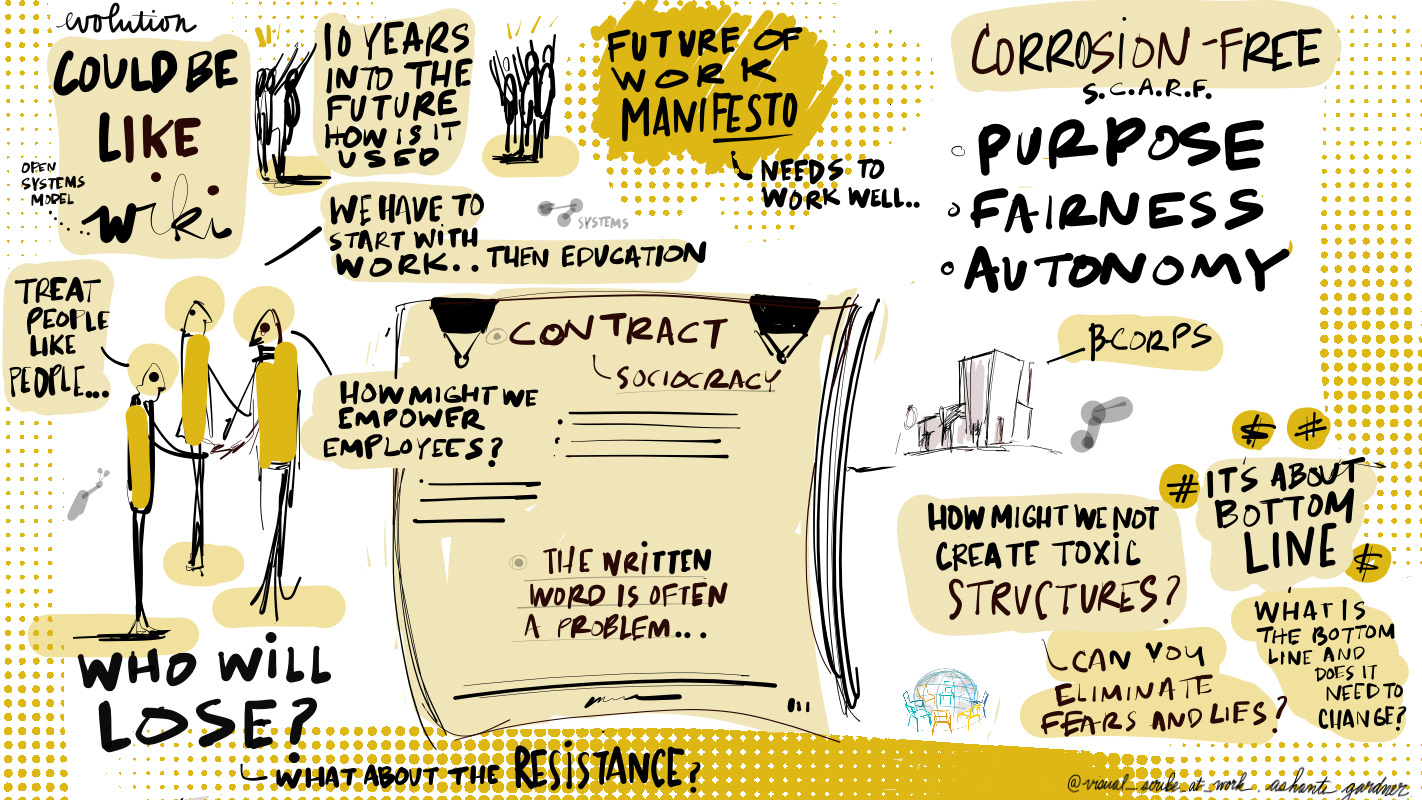 evolution
COULD BE
LIKE
wiki
OPEN
SYSTEMS
MODEL
10 YEARS
INTO THE
FUTURE
HOW IS IT
USED
FUTURE OF
WORK
MANIFESTO
NEEDS TO
WORK WELL..
CORROSION-FREE
S.C.A.R.F.
PURPOSE
FAIRNESS
AUTONOMY
WE HAVE TO
START WITH
WORK.. THEN EDUCATION
SYSTEMS
TREAT
PEOPLE
LIKE
PEOPLE...
HOW MIGHT WE
EMPOWER
EMPLOYEES?
CONTRACT
SOCIOCRACY
THE WRITTEN
WORD IS OFTEN
A PROBLEM...
B-CORPS
$ #
# IT'S ABOUT
BOTTOM
LINE
$
HOW MIGHT WE NOT
CREATE TOXIC
STRUCTURES?
CAN YOU
ELIMINATE
FEARS AND LIES?
WHAT IS
THE BOTTOM
LINE AND
DOES IT
NEED TO
CHANGE?
WHO WILL
LOSE?
WHAT ABOUT THE RESISTANCE?
@visual_scribe_at_work. ashanti gardner